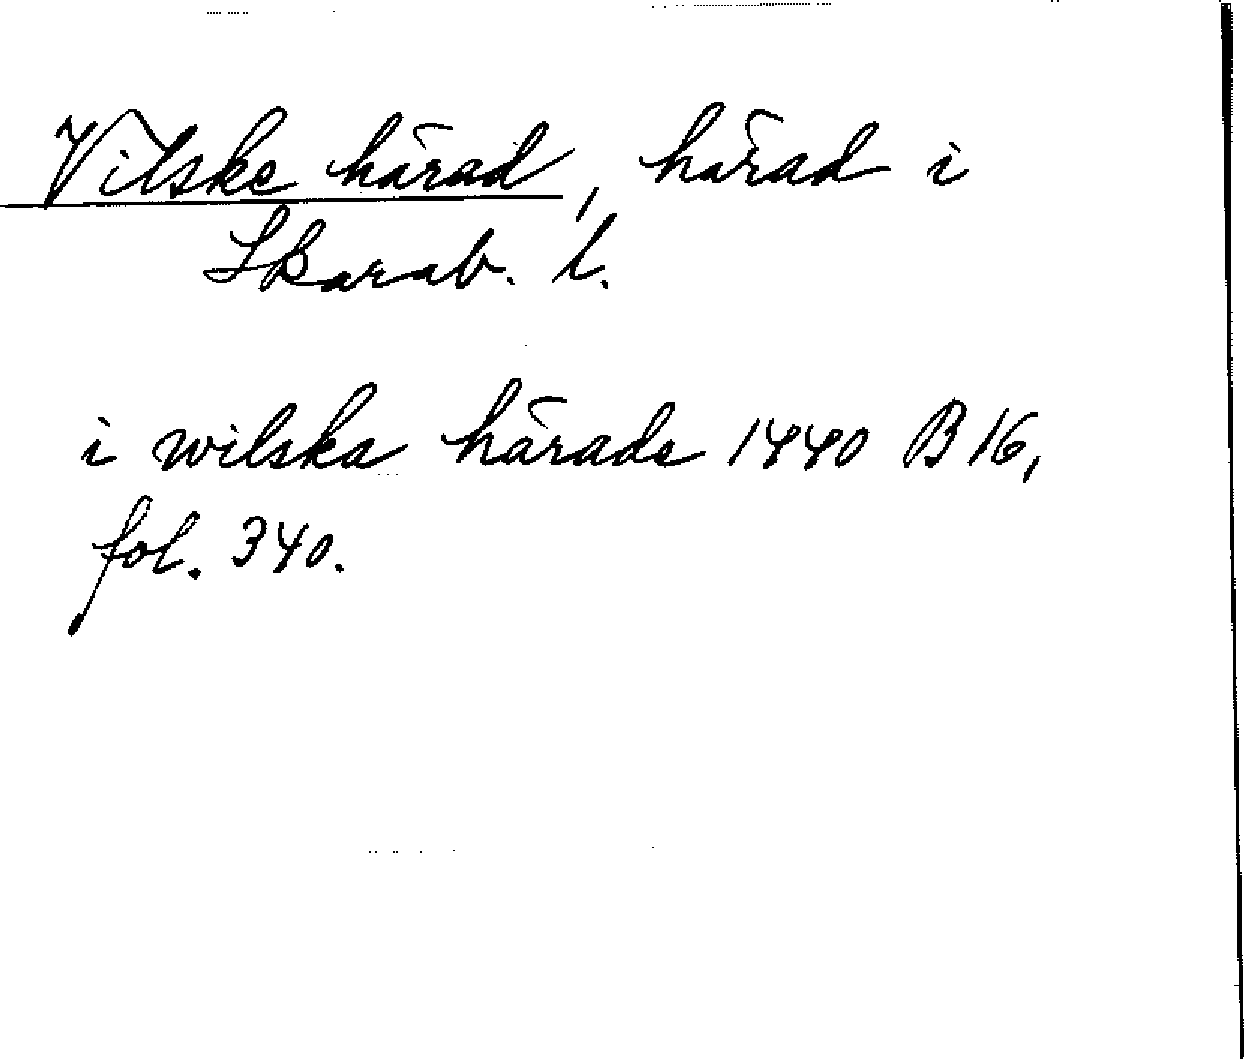 Vilske härad, härad i
Skarab. l.
i wilska härade 1440 B 16,
fol. 340.